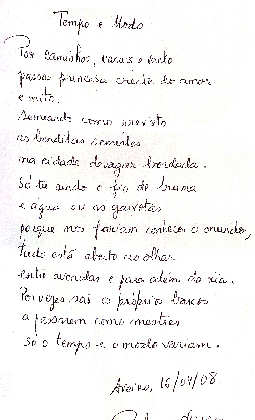 Tempo e Modo
Por caminhos, vacas e vento
passas princesa cheia de amor
e mito.
Semeando como
as benditas sementes
na cidade devagar bordada.
Só tu ando o fio de bruma
e água ou as gaivotas
porque nos fariam conhecer o mundo,
tudo está aberto ao olhar
entre avenidas e para além da ria.
Por vezes são os próprios barcos
a passarem como mestres
só o tempo e o modo variam.
Aveiro, 15/04/08